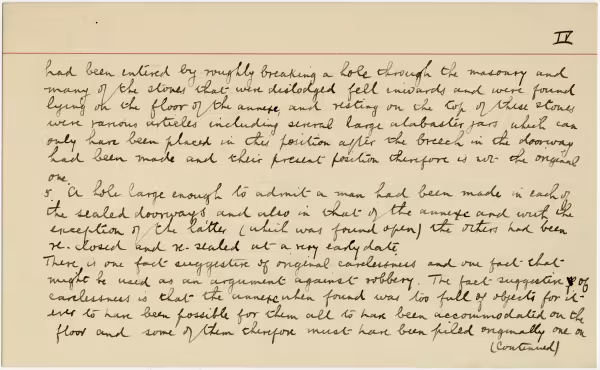 IV
had been entered by roughly breaking a hole through the masonry and
many of the stones that were dislodged fell inwards and were found
lying on the floor of the annexe, and resting on the top of these stones
were various articles including several large alabaster jars which can
only have been placed in this position after the breech in the doorway
had been made and their present position therefore is not the original
one.
5. A hole large enough to admit a man had been made in each of
the sealed doorways and also in that of the annexe and with the
exception of the latter (which was found open) the others had been
re-closed and re-sealed at a very early date.
There is one fact suggestive of original carelessness and one fact that
might be used as an argument against robbery. The fact suggestive of
carelessness is that the annexe when found was too full of objects for it
ever to have been possible for them all to have been accommodated on the
floor and some of them therefore must have been piled originally one on
(continued)